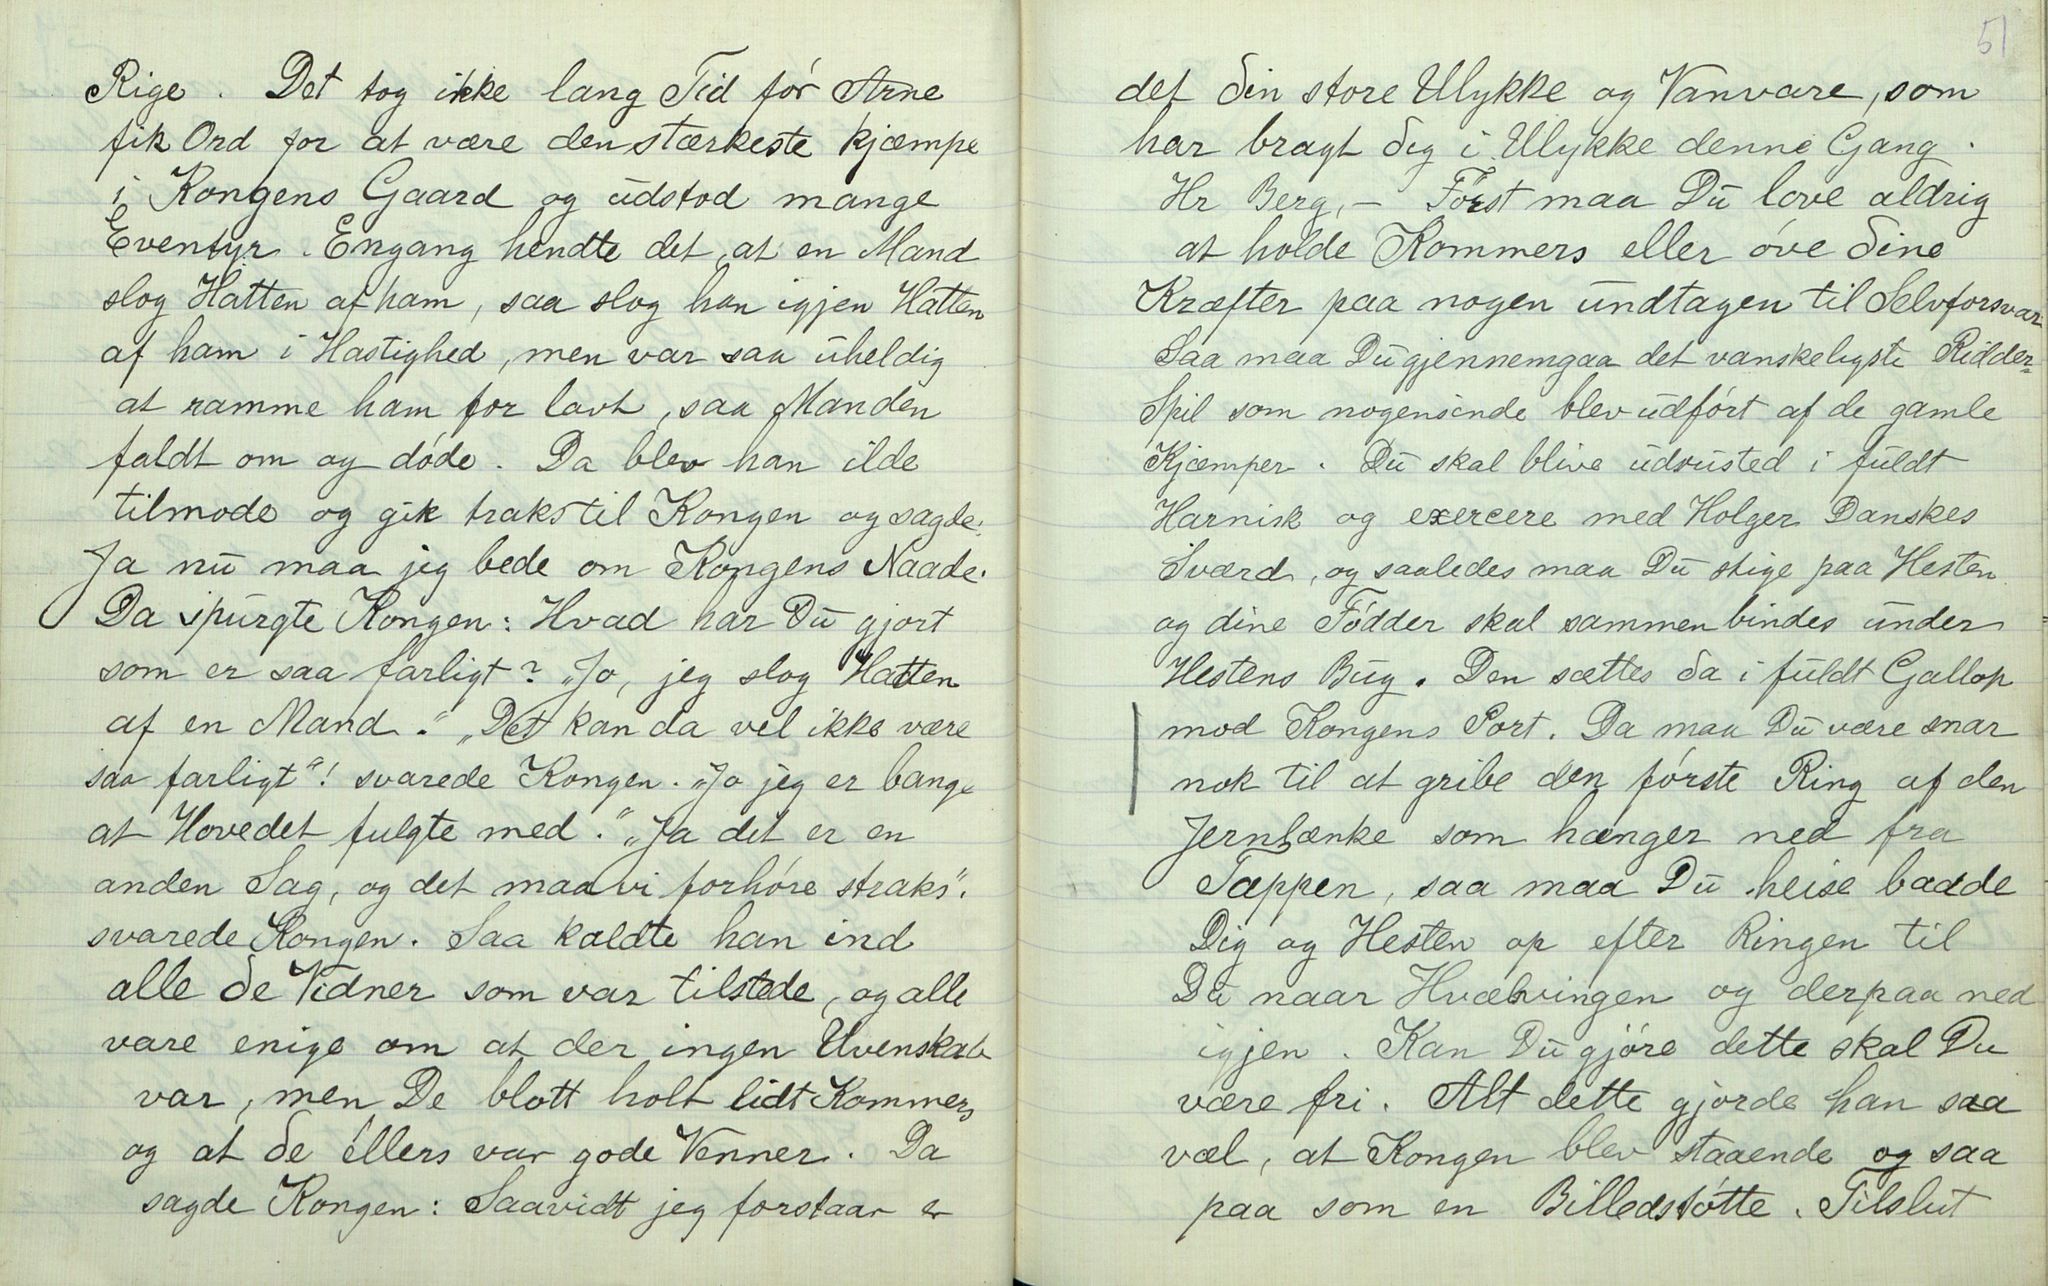 Rige. Det tog ikke lang Tid før Arne
fik Ord for at være den stærkeste kjæmpe
i Kongens Gaard og udstod mange
Eventyr. Engang hendte det, at en Mand
slog Hatten af ham, saa slog han igjen Hatten
af ham i Hastighed, men var saa uheldig
at ramme ham for lavt, saa Manden
faldt om og døde. Da blev han ilde
tilmode og gik straks til Kongen og sagde:
Ja nu maa jeg bede om Kongens Naade.
Da spurgte Kongen: Hvad har Du gjort
som er saa farligt? „Jo, jeg slog Hatten
af en Mand.“ „Det kan da vel ikke være
saa farligt“! svarede Kongen. „Jo jeg er bange
at Hovedet fulgte med.“ „Ja det er en
anden Sag, og det maa vi forhøre straks“.
svarede Kongen. Saa kaldte han ind
alle de Vidner som var tilstede, og alle
vare enige om at der ingen Uvenskab
var, men De blott holt lidt Kommers
og at de éllers var gode Venner. Da
sagde Kongen: Saavidt jeg forstaar er
51
det din store Ulykke og Vanvare, som
har bragt dig i Ulykke denne Gang.
Hr Berg, – Først maa Du love aldrig
at holde Kommers eller øve dine
Kræfter paa nogen undtagen til Selvforsvar
Saa maa Du gjennemgaa det vanskeligste Ridder=
Spil som nogensinde blev udført af de gamle
Kjæmper. Du skal blive udrusted i fuldt
Harnisk og exercere med Holger Danskes
Sværd, og saaledes maa Du stige paa Hesten
og dine Fødder skal sammenbindes under
Hestens Bug. Den sættes da i fuldt Gallop
mod Kongens Port. Da maa Du være snar
nok til at gribe den første Ring af den
Jernlænke som hænger ned fra
Tappen, saa maa Du heise baade
Dig og Hesten op efter Ringen til
Du naar Hvælvingen og derpaa ned
igjen. Kan Du gjøre dette skal Du
være fri. Alt dette gjorde han saa
væl, at Kongen blev staaende og saa
paa som en Billedstøtte. Tilslut